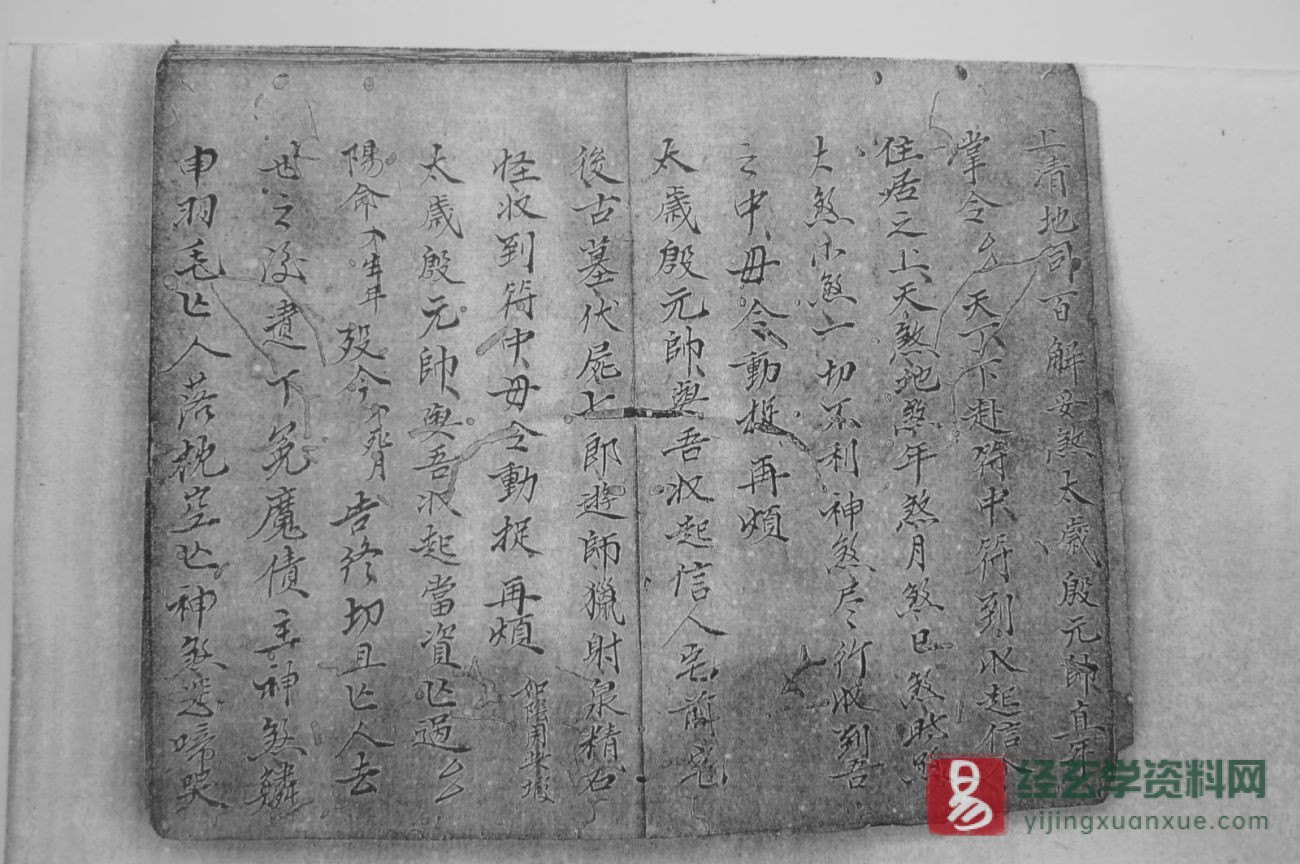 上清地司百解安煞太歲殷元帥真年
掌令厶厶天下下赴符中符到收起信人
住居之上天煞地煞年煞月煞日煞時煞
大煞小煞一切不利神煞尽行收到吾
之中毋令動捉再煩
太歲殷元帥與吾收起信人宅前宅
後古墓伏屍七郎遊師獵射泉精石
怪收到符中毋令動捉再煩
如陰用此墟
太歲殷元帥與吾收起當資亡過厶厶
陽命 年 歿今 月 告終切且亡人去
世之後遺下冤魔債主神煞鱗
申羽毛亡人落枕空亡神煞悲啼哭
易
经玄学资料网
yijingxuanxue.com